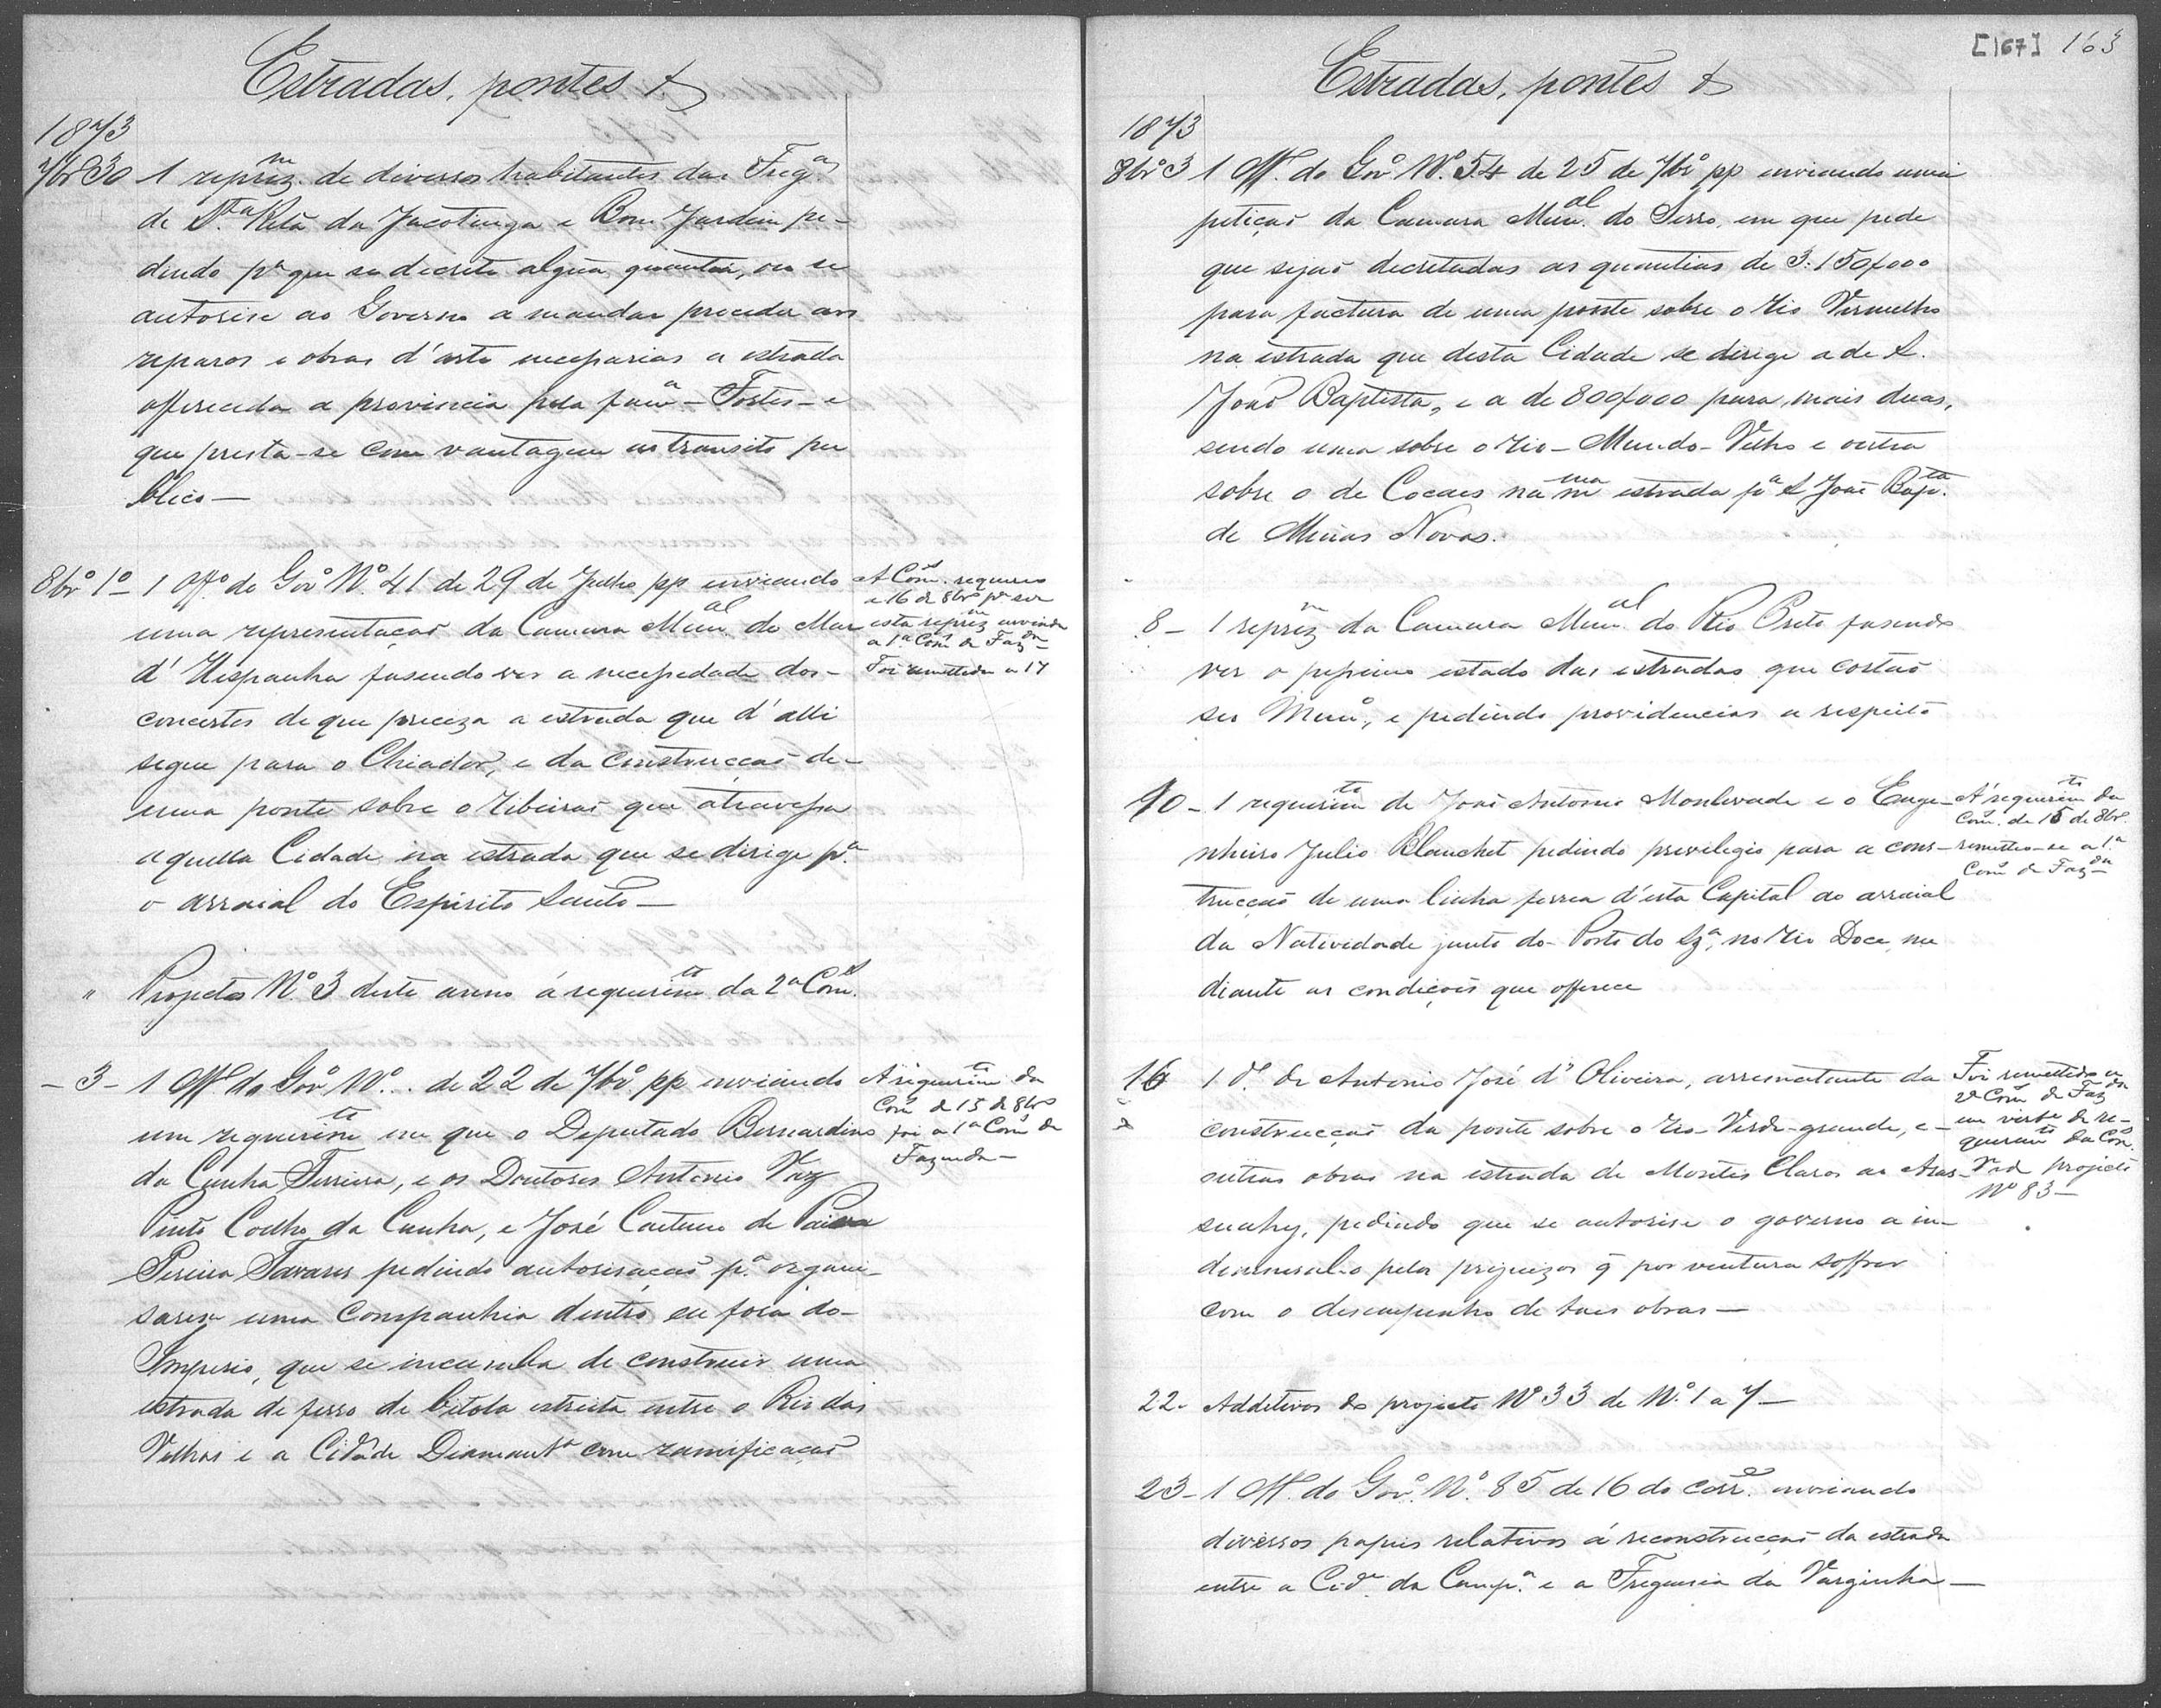 Estradas, pontes &
1873
7br 30 1 reprez.m de diversos habitantes das Freg.as
de S.ta Rita da Jacotinga e Bom Jardim pe-
dindo p.a que se decrete algũa quantia, ou se
autorise ao Governo a mandar proceder aos
reparos e obras d'arte necessarias a estrada
offerecida a provincia pela fam.a - Fortes - e
que presta-se com vantagem ao transito pu
blico —
8br.o 1.o 1 Off.o do Gov.o N.o 41 de 29 de Julho pp enviando
uma representação da Camara Mun.al do Mar
d'Hespanha fasendo ver a necessedade dos-
concertos de que preceza a estrada que d'alli
segue para o Chiador, e da construcção de-
uma ponte sobre o ribeirão que atravessa
aquella Cidade na estrada que se dirige p.a
o arraial do Espirito Santo —
A Com. requereu
a 16 de 8br.o p.a ser
esta reprez.m enviada
a 1.a Com. de Faz.da
Foi remettida a 17
" Projeto N.o 3 deste anno á requerim.to da 2.a Com.
- 3 - 1 Off. do Gov.o N.o ... de 22 de 7br.o pp enviando
um requerim.to em que o Deputado Bernardino
da Cunha Ferreira, e os Doutores Antonio Vaz
Pinto Coelho da Cunha, e José Caetano de Paiva
Pereira Tavares pedindo autorisação p.a organi-
sarem uma Companhia dentro ou fora do-
Imperio, que se incumba de construir uma
estrada de ferro de bitola estreita entre o Rio das
Velhas e a Cid.e de Diamant.a com ramificação
A requerim.to da
Com. de 15 de 8br.o
foi a 1.a Com. de
Fazenda —
[167] 163
Estradas, pontes &
1873
8br.o 3 1 Off. do Gov.o N.o 54 de 25 de 7br.o pp enviando uma
petição da Camara Mun.al do Serro, em que pede
que sejão decretadas as quantias de 3:150$000
para factura de uma ponte sobre o rio Vermelho
na estrada que desta Cidade se dirige a de S.
João Baptista, e a de 800$000 para mais duas,
sendo uma sobre o rio - Mundo - Velho e outra
sobre o de Cocaes na m.ma estrada p.a S João Bap.ta
de Minas Novas.
8 - 1 reprez.m da Camara Mun.al do Rio Preto fasendo
ver o pessimo estado das estradas que cortão
seo Mun.o, e pedindo providencias a respeito
10 - 1 requerim.to de João Antonio Monlevade e o Enge-
nheiro Julio Blanchet pedindo previlegio para a cons-
trucção de uma linha ferrea d'esta Capital ao arraial
da Natividade junto do Porto do Sz.a, no rio Doce, me
diante as condições que offerece
A' requerim.to da
Com. de 15 de 8br.o
remetteo-se a 1.a
Com. de Faz.da
16 1 d.o de Antonio José d'Oliveira, arrematante da
construcção da ponte sobre o rio Verde-grande, e -
outras obras na estrada de Montes Claros ao Aras-
suahy, pedindo que se autorise o governo a in-
demnisal-o pelos prejuizos q̃ por ventura soffrer
com o desempenho de taes obras —
Foi remettido a
2.a Com. de Faz.da
em virt.e de re-
querim.to da Com.
Vid. projecto
N.o 83 —
22 - Additivos do projecto N.o 33 de N.o 1 a 7 —
23 - 1 Off. do Gov.o N.o 85 de 16 do corr.e enviando
diversos papeis relativos á reconstrucção da estrada
entre a Cid.e da Camp.a e a Freguesia da Varginha —